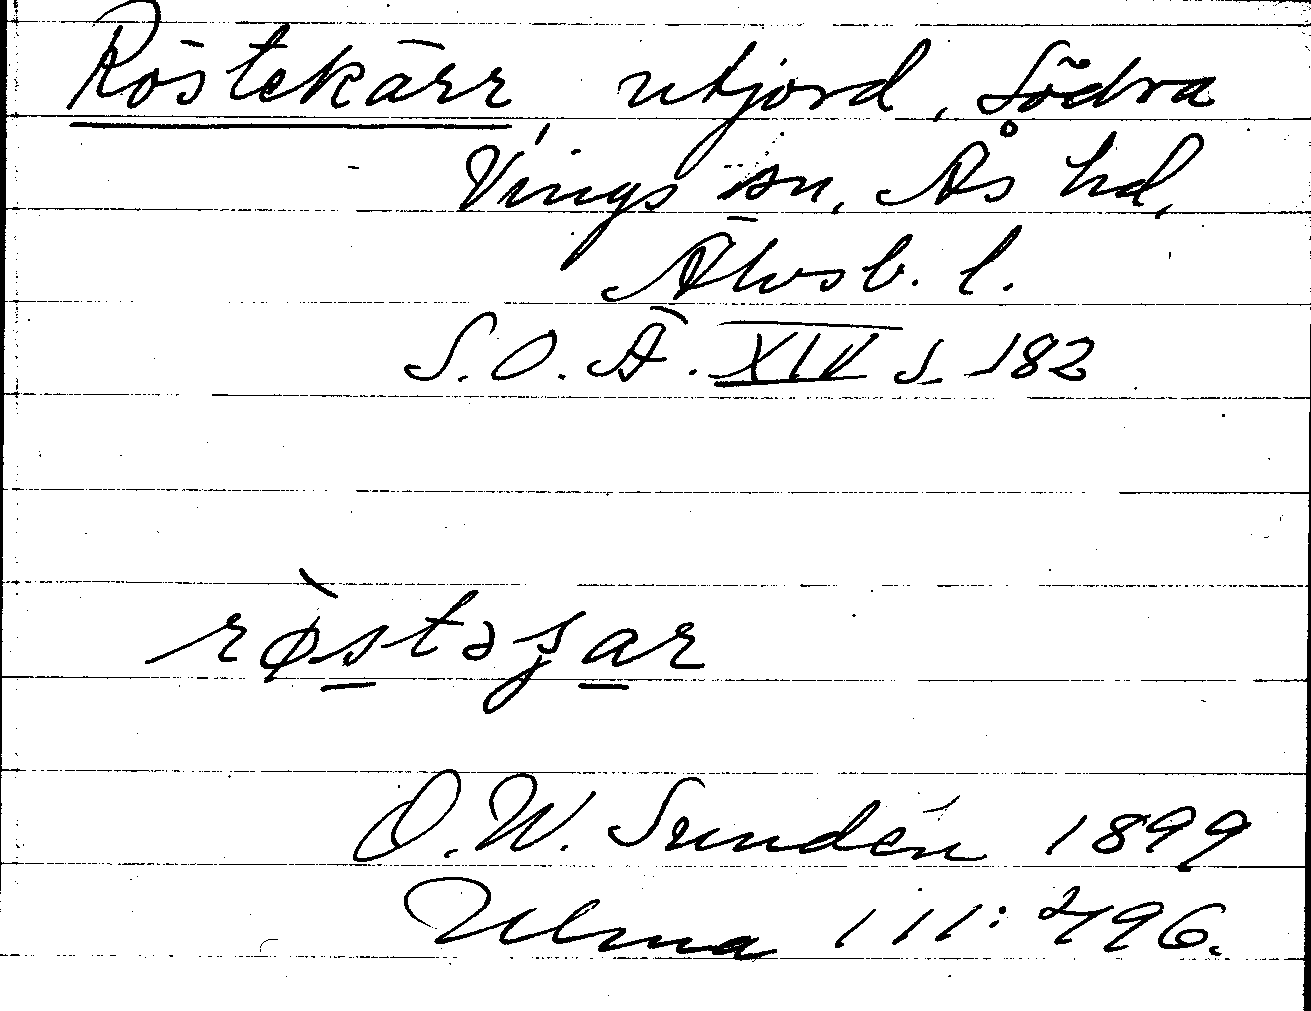 Röstekärr, utjord, Södra
Vings sn, Ås hd,
Älvsb. l.
S.O.Ä. XIV s. 182
rø̀stəʂar
D. W. Sundén 1899
Ulma 111:496.